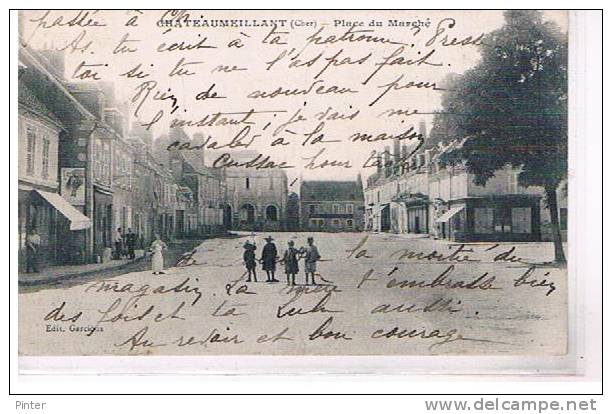 passée à
CHATEAUMEILLANT (Cher) - Place du Marché
As. tu écrit à ta patronne. Presse
toi si tu ne l'as pas fait.
Rien de nouveau pour
l'instant, je vais me
à la maison
pour ta
de la moitié du
magasin. La mère t'embrasse bien
des fois et ta Lulu aussi.
Au revoir et bon courage
Edit. Garcioux
Pinter
http://www.delcampe.net